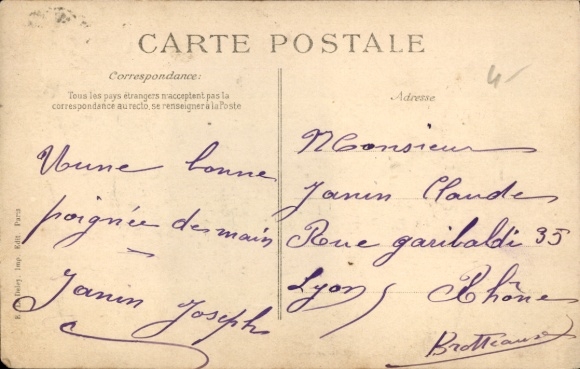 CARTE POSTALE
Correspondance:
Tous les pays étrangers n'acceptent pas la
correspondance au recto, se renseigner à la Poste
Vune bonne
poignée de main
Janin Joseph
Adresse
4-
Monsieur
Janin Claude
Rue garibaldi 35
Lyon Rhône
Brotteaux
Imp. Edit Paris